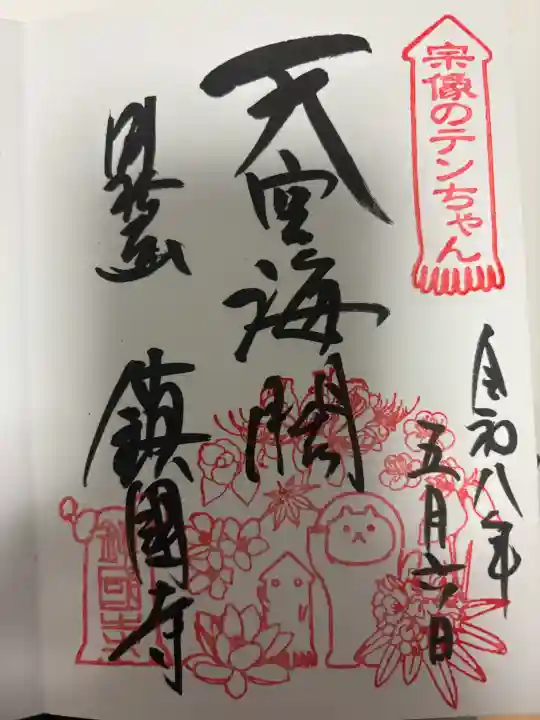 宗像のテンちゃん
令和八年
五月六日
天空海闊
屏風山
鎮國寺